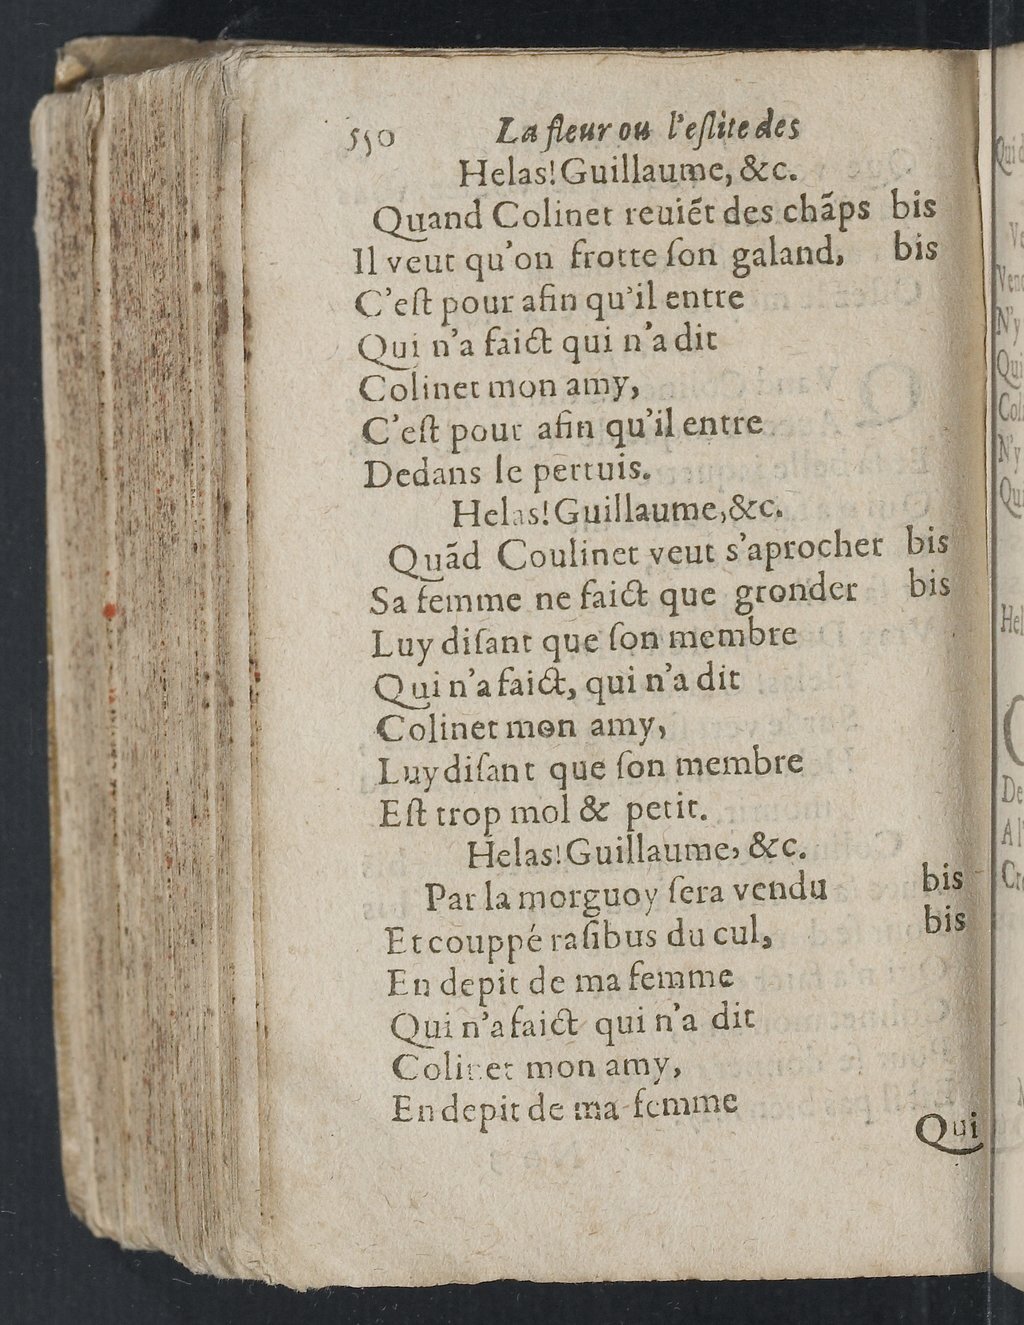 550 La fleur ou l'eſlite des
Helas! Guillaume, &c.
Quand Colinet reuiẽt des chãps bis
Il veut qu'on frotte ſon galand, bis
C'eſt pour afin qu'il entre
Qui n'a faict qui n'a dit
Colinet mon amy,
C'eſt pour afin qu'il entre
Dedans le pertuis.
Helas! Guillaume, &c.
Quãd Coulinet veut s'aprocher bis
Sa femme ne faict que gronder bis
Luy diſant que ſon membre
Qui n'a faict, qui n'a dit
Colinet mon amy,
Luy diſant que ſon membre
Eſt trop mol & petit.
Helas! Guillaume, &c.
Par la morguoy ſera vendu bis
Et couppé raſibus du cul, bis
En depit de ma femme
Qui n'a faict qui n'a dit
Colinet mon amy,
En depit de ma femme
Qui